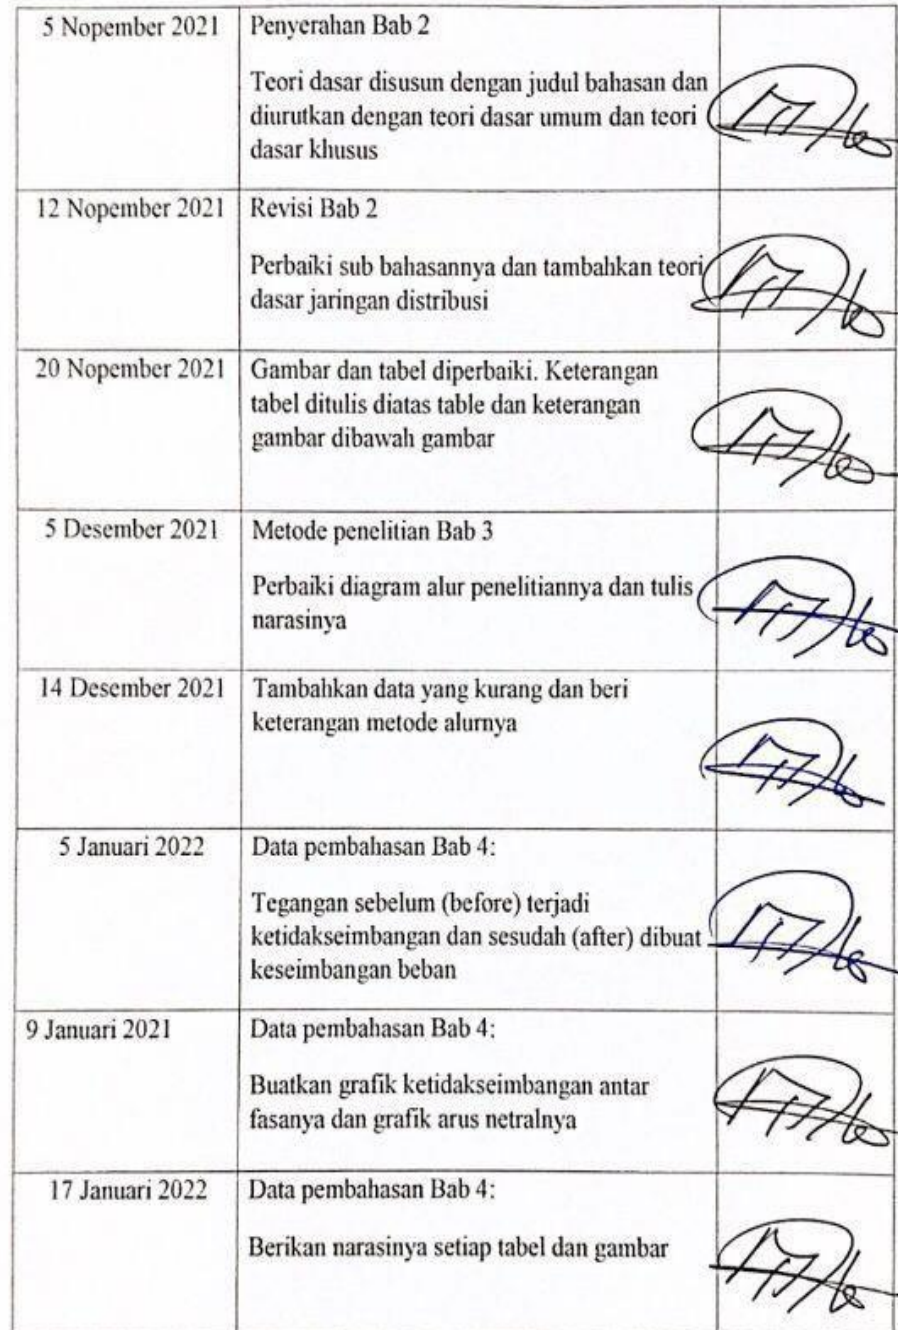 5 Nopember 2021
Penyerahan Bab 2
Teori dasar disusun dengan judul bahasan dan
diurutkan dengan teori dasar umum dan teori
dasar khusus
12 Nopember 2021
Revisi Bab 2
Perbaiki sub bahasannya dan tambahkan teori
dasar jaringan distribusi
20 Nopember 2021
Gambar dan tabel diperbaiki. Keterangan
tabel ditulis diatas table dan keterangan
gambar dibawah gambar
5 Desember 2021
Metode penelitian Bab 3
Perbaiki diagram alur penelitiannya dan tulis
narasinya
14 Desember 2021
Tambahkan data yang kurang dan beri
keterangan metode alurnya
5 Januari 2022
Data pembahasan Bab 4:
Tegangan sebelum (before) terjadi
ketidakseimbangan dan sesudah (after) dibuat
keseimbangan beban
9 Januari 2021
Data pembahasan Bab 4:
Buatkan grafik ketidakseimbangan antar
fasanya dan grafik arus netralnya
17 Januari 2022
Data pembahasan Bab 4:
Berikan narasinya setiap tabel dan gambar